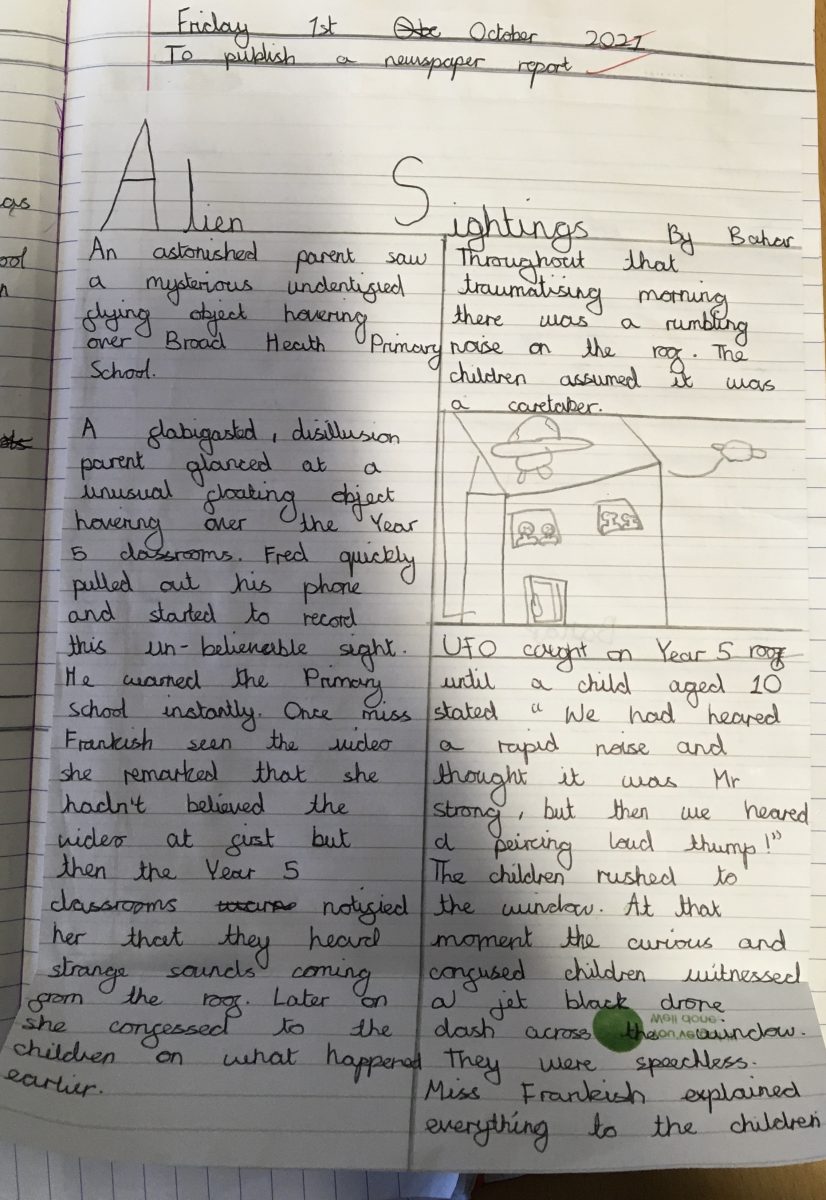 Friday 1st Octe October 2021
To publish a newspaper report
Alien Sightings By Bahar
An astonished parent saw
a mysterious undentified
flying object hovering
over Broad Heath Primary
School.
A flabigasted, disillusion
parent glanced at a
unusual floating object
hovering over the Year
5 classrooms. Fred quickly
pulled out his phone
and started to record
this un-believeable sight.
He warned the Primary
school instantly. Once miss
Frankish seen the video
she remarked that she
hadn't believed the
video at first but
then the Year 5
classrooms notified
her that they heard
strange sounds coming
from the roof. Later on
she confessed to the
children on what happened
earlier.
Throughout that
traumatising morning
there was a rumbling
noise on the roof. The
children assumed it was
a caretaker.
UFO caught on Year 5 roof
until a child aged 10
stated " We had heared
a rapid noise and
thought it was Mr
strong, but then we heared
a peircing loud thump!"
The children rushed to
the window. At that
moment the curious and
confused children witnessed
a jet black drone
dash across the window.
They were speechless.
Miss Frankish explained
everything to the children
Well done